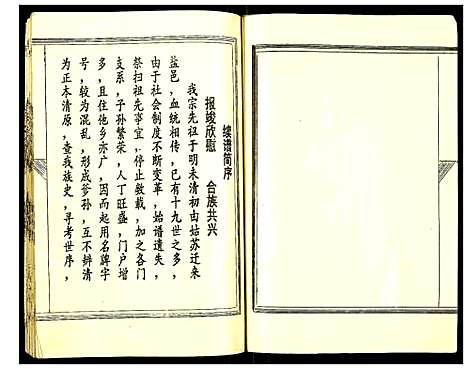 续谱简序
报竣欣慰　合族共兴
我宗先祖于明未清初由姑苏迁来
益邑，血统相传，已有十九世之多，
由于社会制度不断变革，始谱遗失，
祭扫祖先事宜，停止数载，加之各门
支系，子孙繁荣，人丁旺盛，门户增
多，且住他乡亦广，因而起用名牌字
号，较为混乱，形成爹孙，互不辨清
为正本清源，查我族史，寻考世序，